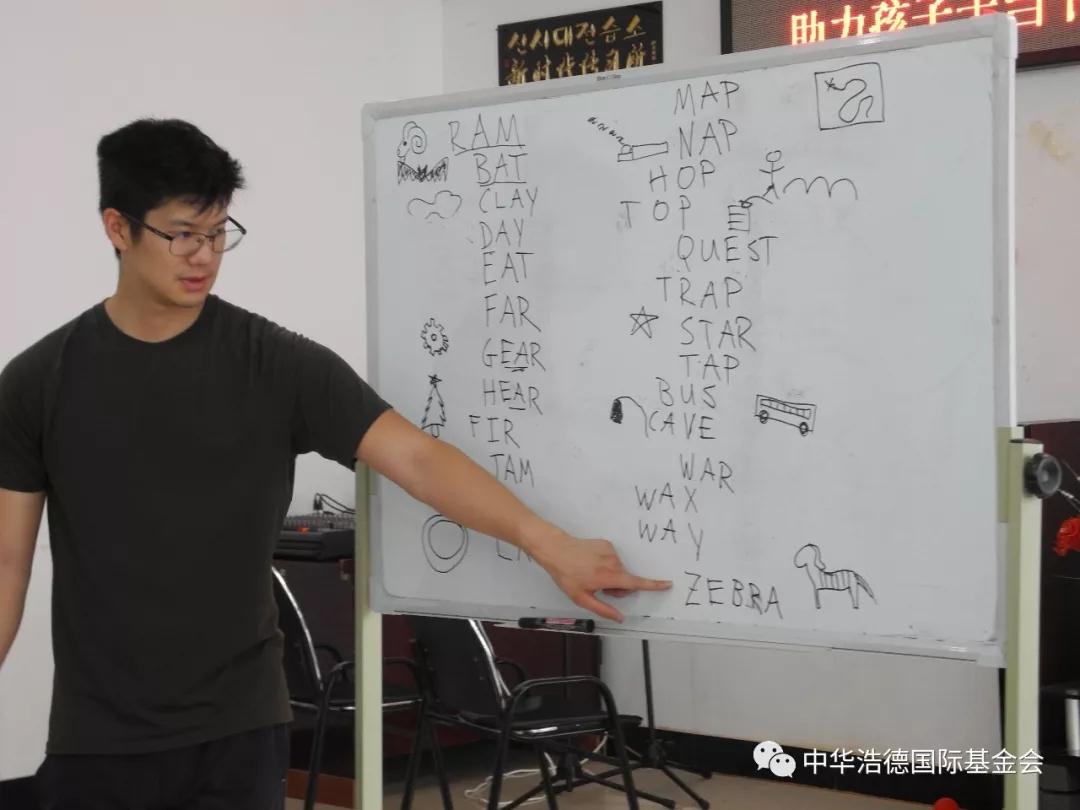 신시대전습소
新时代传习所
助力孩子
RAM
BAT
CLAY
DAY
EAT
FAR
GEAR
HEAR
FIR
JAM
MAP
NAP
HOP
TOP
QUEST
TRAP
STAR
TAP
BUS
CAVE
WAR
WAX
WAY
ZEBRA
中华浩德国际基金会